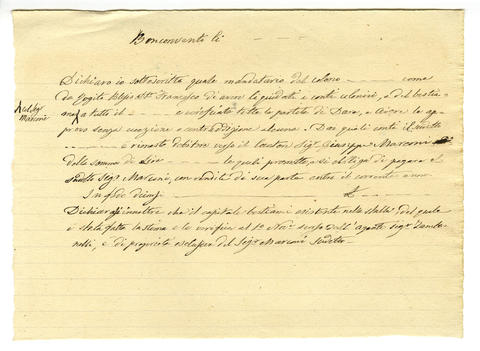 Bonconvento li - - - -
Dichiaro io sottoscritto quale mandatario del colono - - - - come
da Foglio Francesco di aver liquidati i conti colonici, e del bestia-
me a tutto il - - - e verificato tutte le partite di Dare, e Avere le ap-
del Sigr
Marconi
provo senza eccezione o contradizione alcuna. Dai quali conti il
- - - è rimasto debitore verso il Sigr Giuseppe Marconi
della somma di Lire - - - le quali promette, e si obbliga di pagare al
Sudto Sigr Marconi, con rendite di sua parte entro il corrente anno
In fede
Dichiara inoltre che il capitale bestiami esistente nella stalla del quale
è stata fatta la stima e la verifica al 1o Nov. scorso dall'agente Sigr
nelli, e di proprietà esclusiva del Sigr Marconi Sudetto